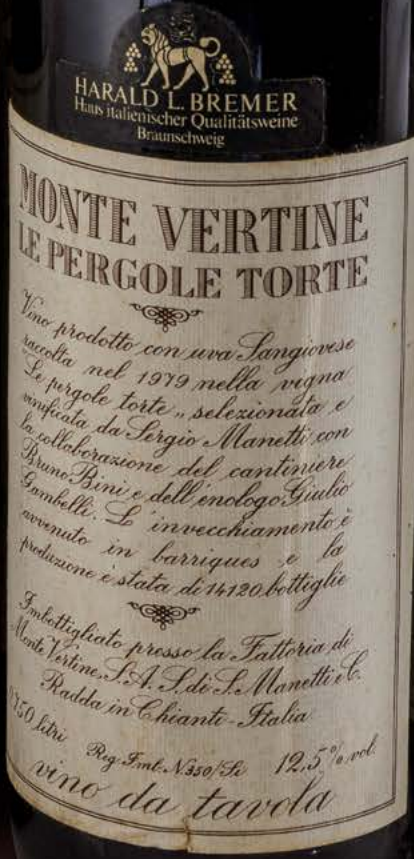 HARALD L. BREMER
Haus italienischer Qualitätsweine
Braunschweig
MONTE VERTINE
LE PERGOLE TORTE
Vino prodotto con uva Sangiovese
raccolta nel 1979 nella vigna
"Le pergole torte" selezionata e
vinificata da Sergio Manetti con
la collaborazione del cantiniere
Bruno Bini e dell'enologo Giulio
Gambelli. L'invecchiamento è
avvenuto in barriques e la
produzione è stata di 14120 bottiglie
Imbottigliato presso la Fattoria di
Monte Vertine, S.A.S. di S. Manetti e C.
Radda in Chianti - Italia
0,750 litri
Reg. Imb. N. 350/Si 12,5% vol.
vino da tavola